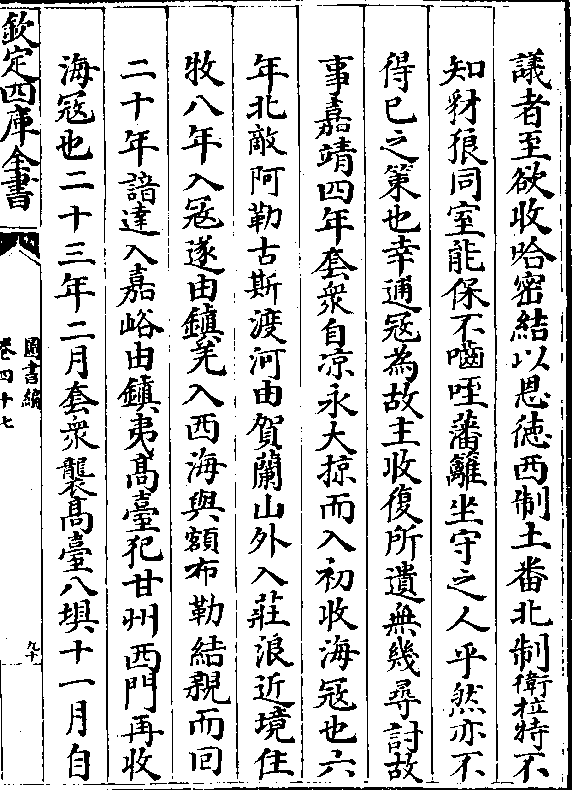 議者至欲收哈密結以恩徳西制土番北制衛拉特不
知豺狼同室能保不嚙咥藩籬坐守之人乎然亦不
得已之策也幸逋冦為故主收復所遺無幾尋討故
事嘉靖四年套衆自凉永大掠而入初收海冦也六
年北敵阿勒古斯渡河由賀蘭山外入莊浪近境住
牧八年入冦遂由鎮羌入西海與額布勒結親而回
二十年諳達入嘉峪由鎮夷髙臺犯甘州西門再收
海冦也二十三年二月套衆襲髙臺八壩十一月自
欽定四庫全書
圖書編
卷四十七
九十